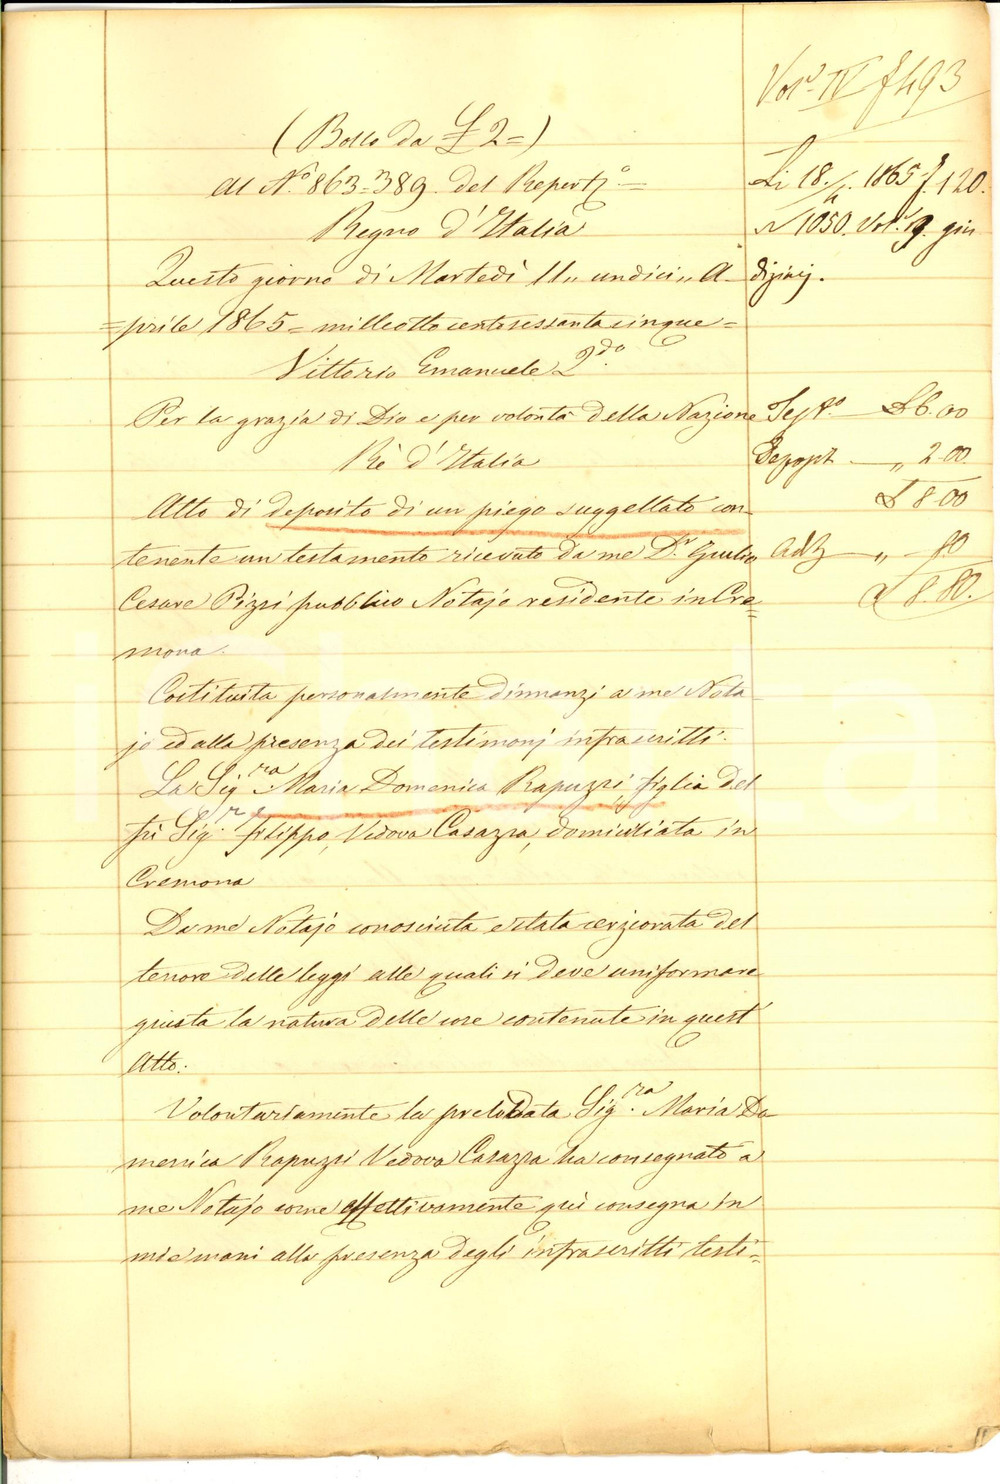 Vol. IV f 493
(Bollo da £ 2=)
Al N.o 863=389. del Repert.o =
Regno d'Italia
Li 18/4. 1865 f. 120.
N 1050. Vol. 19. giu
diziarj.
Questo giorno di Martedì 11,, undici,, A-
=prile 1865= milleottocentosessantacinque=
Vittorio Emanuele 2.do
Per la grazia di Dio e per volontà della Nazione
Rè d'Italia
£ 6.00
,, 2.00
£ 8.00
,, - 80
£ 8.80.
Atto di deposito di un piego suggellato con-
tenente un testamento ricevuto da me D.r Giulio
Cesare Pizzi pubblico Notajo residente in Cre=
mona.
Costituita personalmente dinnanzi a me Nota-
jo ed alla presenza dei testimonj infrascritti.
La Sig.ra Maria Domenica Rapuzzi, figlia del
fu Sig.r Filippo, Vedova Casazza, domiciliata in
Cremona
Da me Notajo conosciuta e stata cerziorata del
tenore delle leggi alle quali si deve uniformare
giusta la natura delle cose contenute in quest'
Atto:
Volontariamente la prelodata Sig.ra Maria Do-
menica Rapuzzi Vedova Casazza ha consegnato a
me Notajo come effettivamente qui consegna in
mie mani alla presenza degli infrascritti testi=